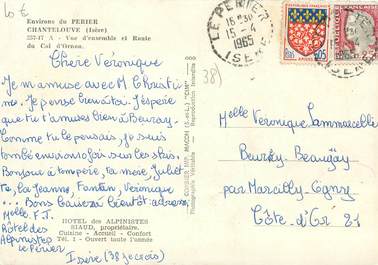 10 €
Environs du PERIER
CHANTELOUVE (Isère)
257-17 A - Vue d'ensemble et Route
du Col d'Ornon.
Chère Véronique
Je m'amuse avec M. Christi
ne. Je pense bien à toi. J'espère
que tu t'amuses bien à Beuray.
Comme tu le pensais, je suis
tombé environ fois sur les skis.
Bonjour à ton père, ta mère, Juliet
te, la Jeanne, Fantou, Véronique
... Bons baisers bientôt: adresse
Melle F.J.
Hôtel des
Alpinistes
le Périer
Isère (38 je crois)
HOTEL DES ALPINISTES
SIAUD, propriétaire.
Cuisine - Accueil - Confort
Tél. 1 - Ouvert toute l'année
COMBIER IMP. MACON (S.-et-L.) "CIM"
Photographie Véritable
Reproduction Interdite
LE PERIER
16 H 30
15-4
1965
ISERE
0,05
AMIENS
1965
ISERE
38
Melle Véronique Lammarcelle
Beurey-Beauguay
par Marcilly-Ogny
Côte-d'Or 21